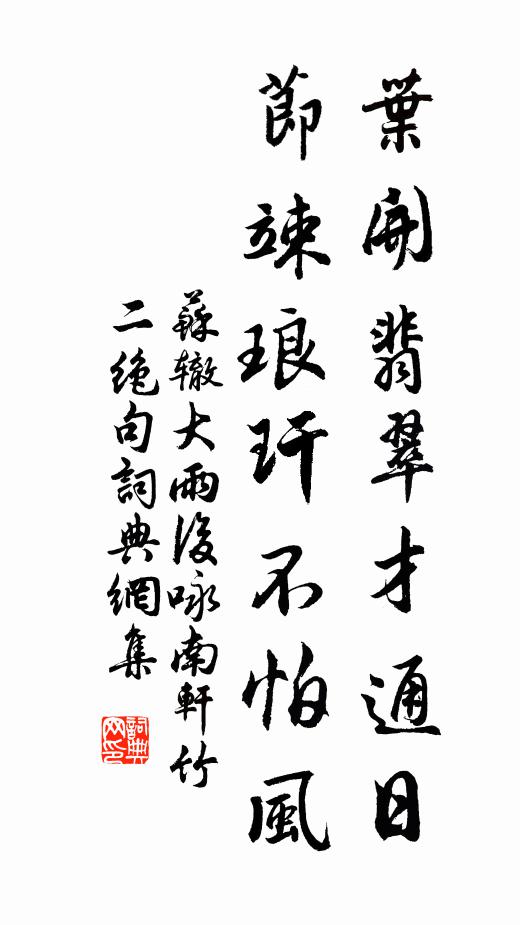 葉開翡翠才通日
節竦琅玕不怕風
蘇轍大雨後咏南軒竹
二絶句詞典網集
詞典
网印